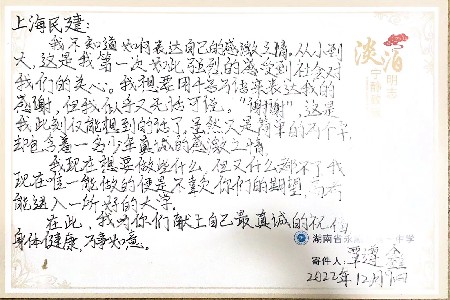 上海民建:
我不知道如何表达自己的感激之情,从小到
大,这是我第一次如此强烈的感受到社会对
我们的关心。我想要用千言万语来表达我的
感谢,但我似乎又无话可说。“谢谢”,这是
我此刻仅能想到的话了,虽然只是简单的两个字,
却包含着一名少年真诚的感激之情
我现在想要做些什么,但又什么都不了我
现在唯一能做的便是不负你们的期望,高考
能进入一所好的大学。
在此,我为你们献上自己最真诚的祝福
身体健康,万事如意。
淡泊
明志
宁静致远
湖南省 一中学
寄件人: 覃
2022年12月9日